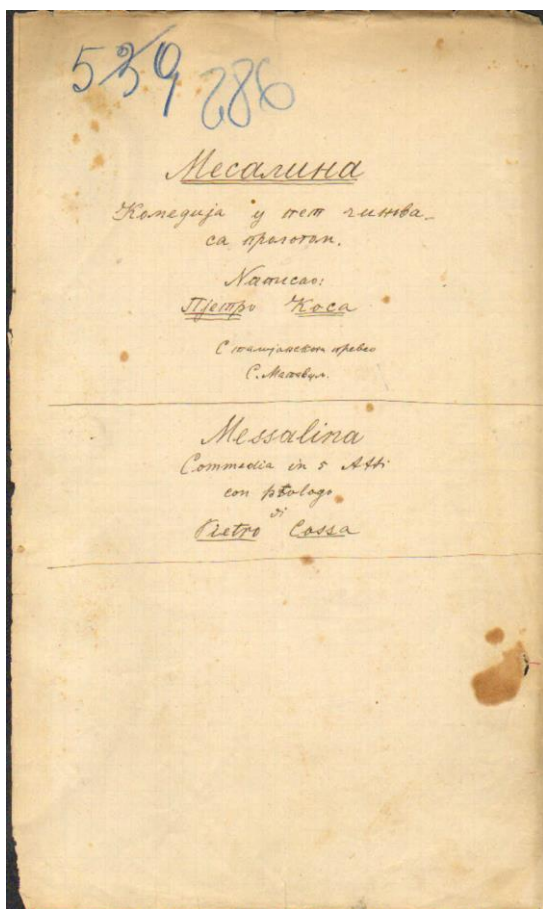 539 286
Месалина
Комедија у пет чинова
са прологом.
Написао:
Пјетро Коса
С талијанскога превео
С. Матавуљ.
Messalina
Commedia in 5 Atti
con prologo
di
Pietro Cossa